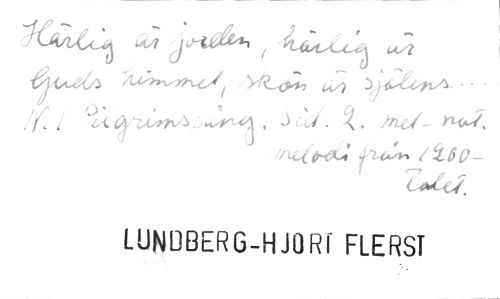 Härlig är jorden, härlig är
Guds himmel, skön är själens....
N. 1 Pilgrimssång. Sid. 2. mel-not.
melodi från 1200-
talet.
LUNDBERG-HJORT FLERST